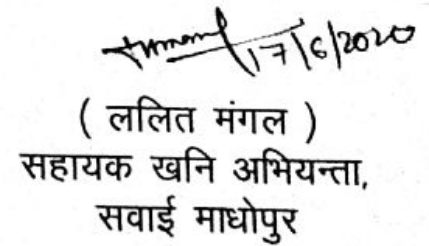 17/6/2020
( ललित मंगल )
सहायक खनि अभियन्ता,
सवाई माधोपुर